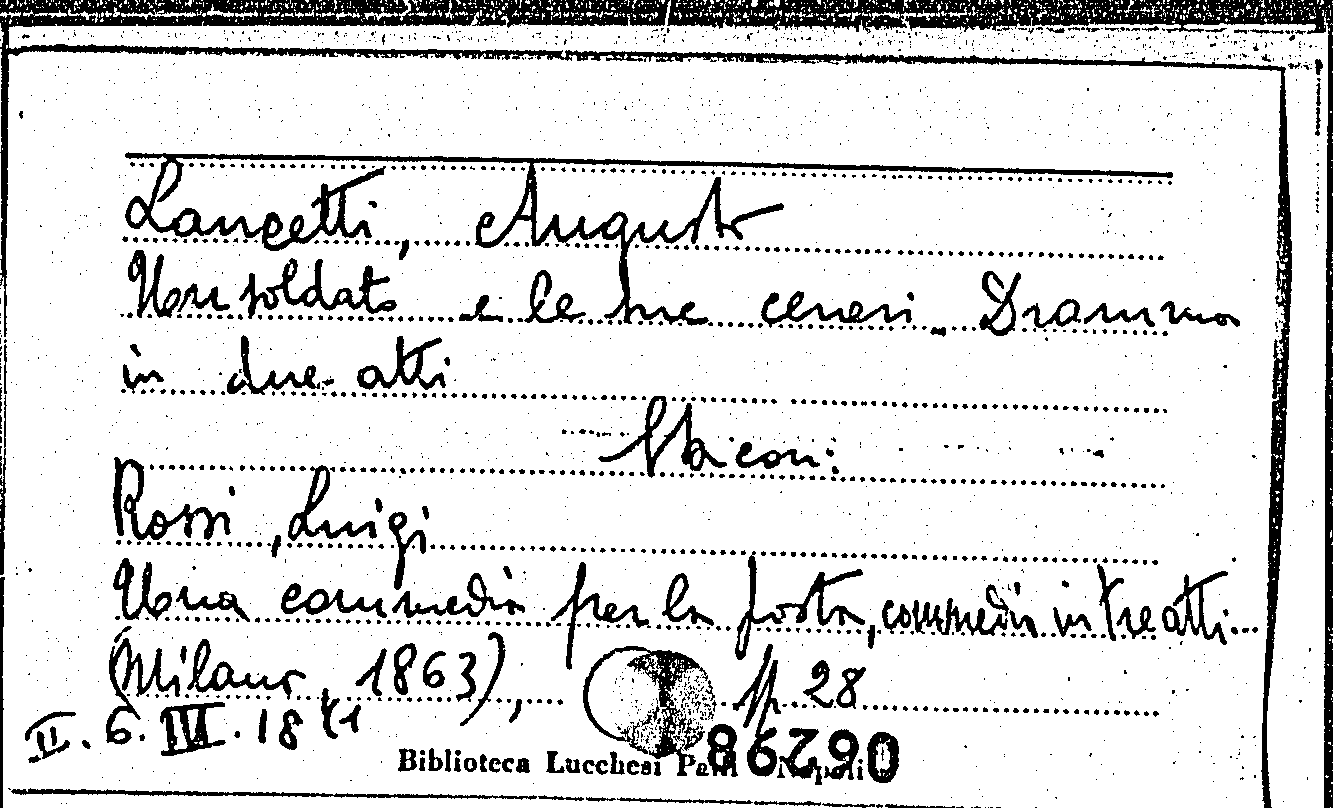 Lancetti, Augusto
Un soldato e le sue ceneri. Dramma
in due atti
Sta con:
Rossi, Luigi
Una commedia per la posta, commedia in tre atti...
(Milano, 1863), pp. 28
II. 6. IVI. 18
Biblioteca Lucchesi Palli Napoli
06298